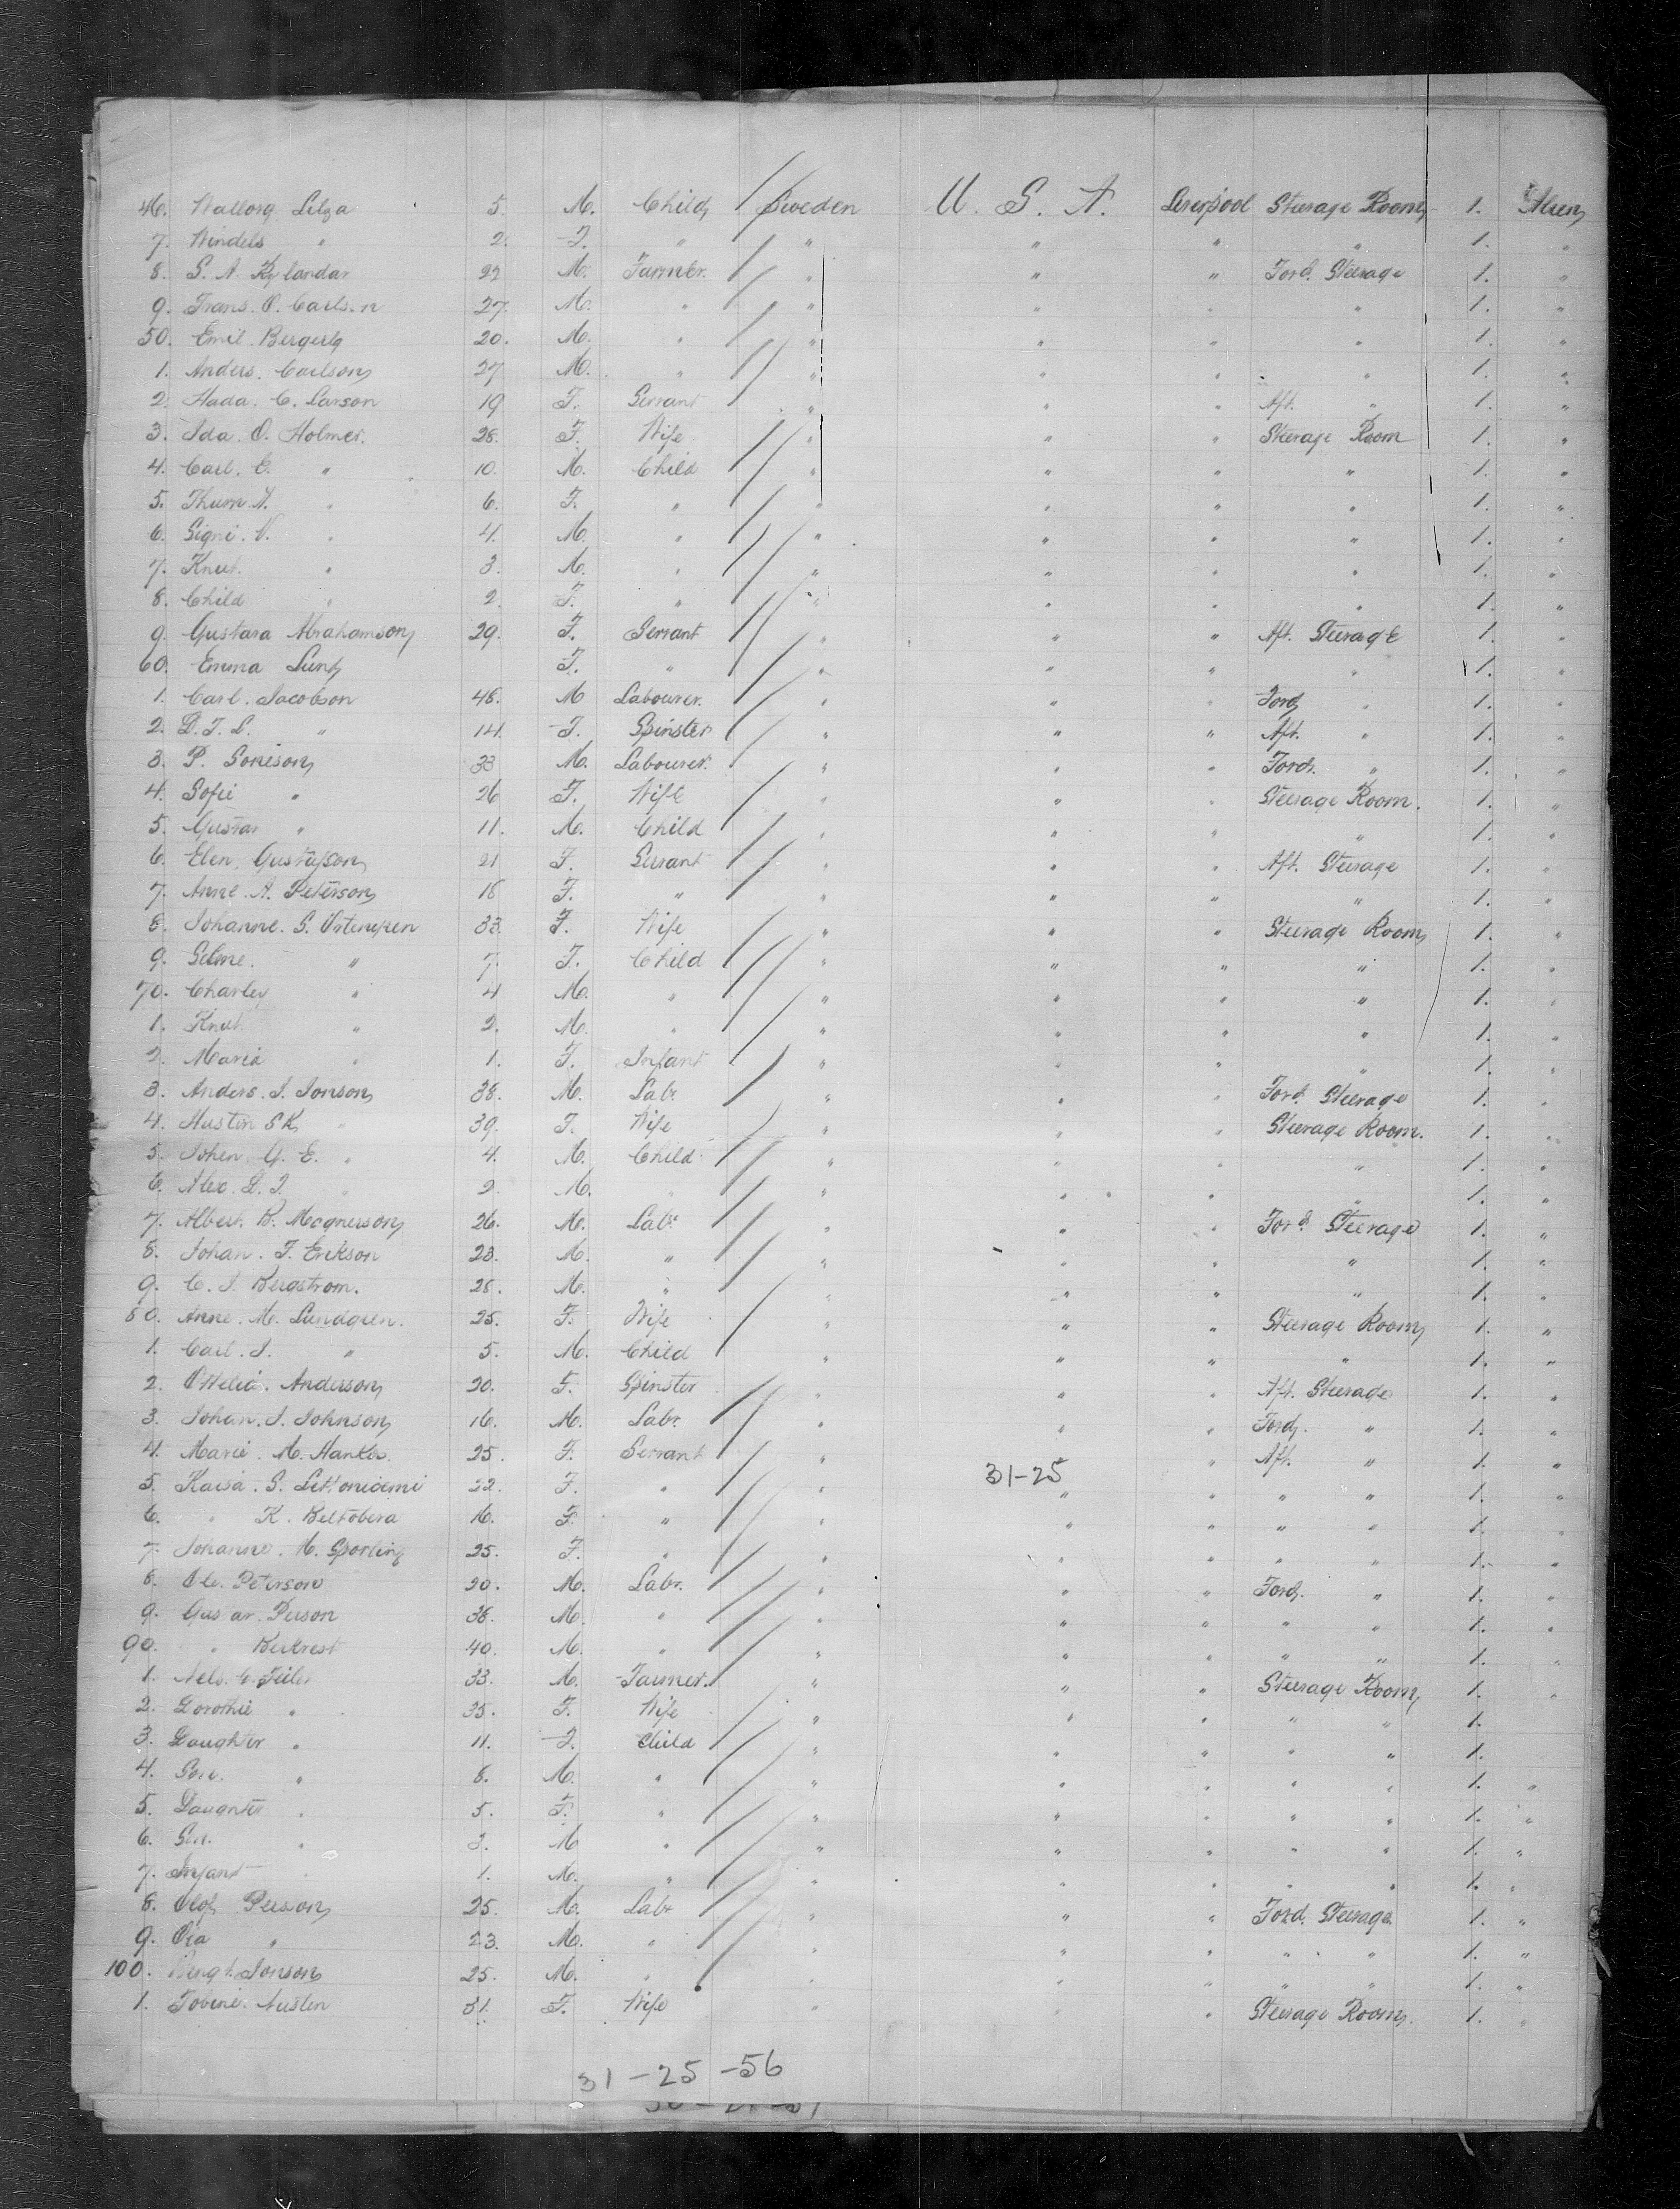 46. Wallorg Lilza 5. M. Child Sweden U. S. A. Liverpool Steerage Room 1. Alien
7. Windels " 2. F. " " " " " 1. "
8. S. A. Rylandar 22 M. Farmer. " " " Ford. Steerage 1. "
9. Frans. O. Carls.n 27. M. " " " " " 1. "
50. Emil. Bergerly 20. M. " " " " " 1. "
1. Anders. Carlson 27 M. " " " " " 1. "
2. Hada. C. Larson 19 F. Servant " " " Aft. " 1. "
3. Ida. O. Holmer. 28. F. Wife " " " Steerage Room 1. "
4. Carl. E. " 10. M. Child " " " " 1. "
5. Thurn A. " 6. F. " " " " " 1. "
6. Signi. V. " 4. M. " " " " " 1. "
7. Knut. " 3. M. " " " " " 1. "
8. Child " 2. F. " " " " " 1. "
9. Gustava Abrahamson 29. F. Servant " " " Aft. Steerage 1. "
60. Emma Lund F. " " " " " 1. "
1. Carl. Jacobson 48. M Labourer. " " " Ford " 1. "
2. D. F. L. " 14. F. Spinster " " " Aft. " 1. "
3. P. Soneson 33 M. Labourer. " " " Ford. " 1. "
4. Sofie " 26 F. Wife " " " Steerage Room. 1. "
5. Gustav " 11. M. Child " " " " 1. "
6. Elen. Gustafson 21 F. Servant " " " Aft. Steerage 1. "
7. Anne. A. Peterson 18 F. " " " " " 1. "
8. Johanne. S. 33. F. Wife " " " Steerage Room 1. "
9. Selme. " 7. F. Child " " " " 1. "
70. Charley " 4 M. " " " " " 1. "
1. Knut. " 2. M. " " " " " 1. "
2. Maria " 1. F. Infant " " " " 1. "
3. Anders. J. Jonson 38. M. Labr. " " " Ford. Steerage 1. "
4. Husten S K " 39. F. Wife " " " Steerage Room. 1. "
5. Johen G. E. " 4. M. Child " " " " 1. "
6. Alex. L. J. " 2. M. " " " " " 1. "
7. Albert. B. Magnerson 26. M. Labr. " " " Ford. Steerage 1. "
8. Johan. F. Erikson 23. M. " " " " " 1. "
9. C. J. Bergstrom. 28. M. " " " " " 1. "
80. Anne. M. Lundgren. 25. F. Wife " " " Steerage Room 1. "
1. Carl. J. " 5. M. Child " " " " 1. "
2. Ottelia. Anderson 20. F. Spinster " " " Aft. Steerage 1. "
3. Johan. J. Johnson 16. M. Labr. " " " Ford. " 1. "
4. Marie. M. Hanks. 25. F. Servant " " Aft. " 1. "
31-25
5. Kaisa. S. 22. F. " " " " " " 1. "
6. " K. Beltobera 16. F. " " " " " " 1. "
7. Johanne. M. Sporling 25. F. " " " " " " 1. "
8. Ole. Peterson 20. M. Labr. " " " Ford. " 1. "
9. Gus av. Person 38. M. " " " " " " 1. "
90. " 40. M. " " " " " " 1. "
1. Nels. C. 33. M. Farmer. " " " Steerage Room 1. "
2. Dorothie " 35. F. Wife " " " " " 1.
3. Daughter " 11. F. Child " " " " " 1.
4. Son. " 8. M. " " " " " " 1. "
5. Daughter " 5. F. " " " " " " 1. "
6. Son. " 3. M " " " " " " 1. "
7. Infant 1. M. " " " " " " 1. "
8. Olof Person 25. M. Labr " " " Ford. Steerage. 1. "
9. Ola " 23. M. " " " " " " 1. "
100. Bengt. Jonson 25. M. " " " " " " 1. "
1. Tobine. Austen 31. F. Wife " " " Steerage Room. 1. "
31 - 25 - 56